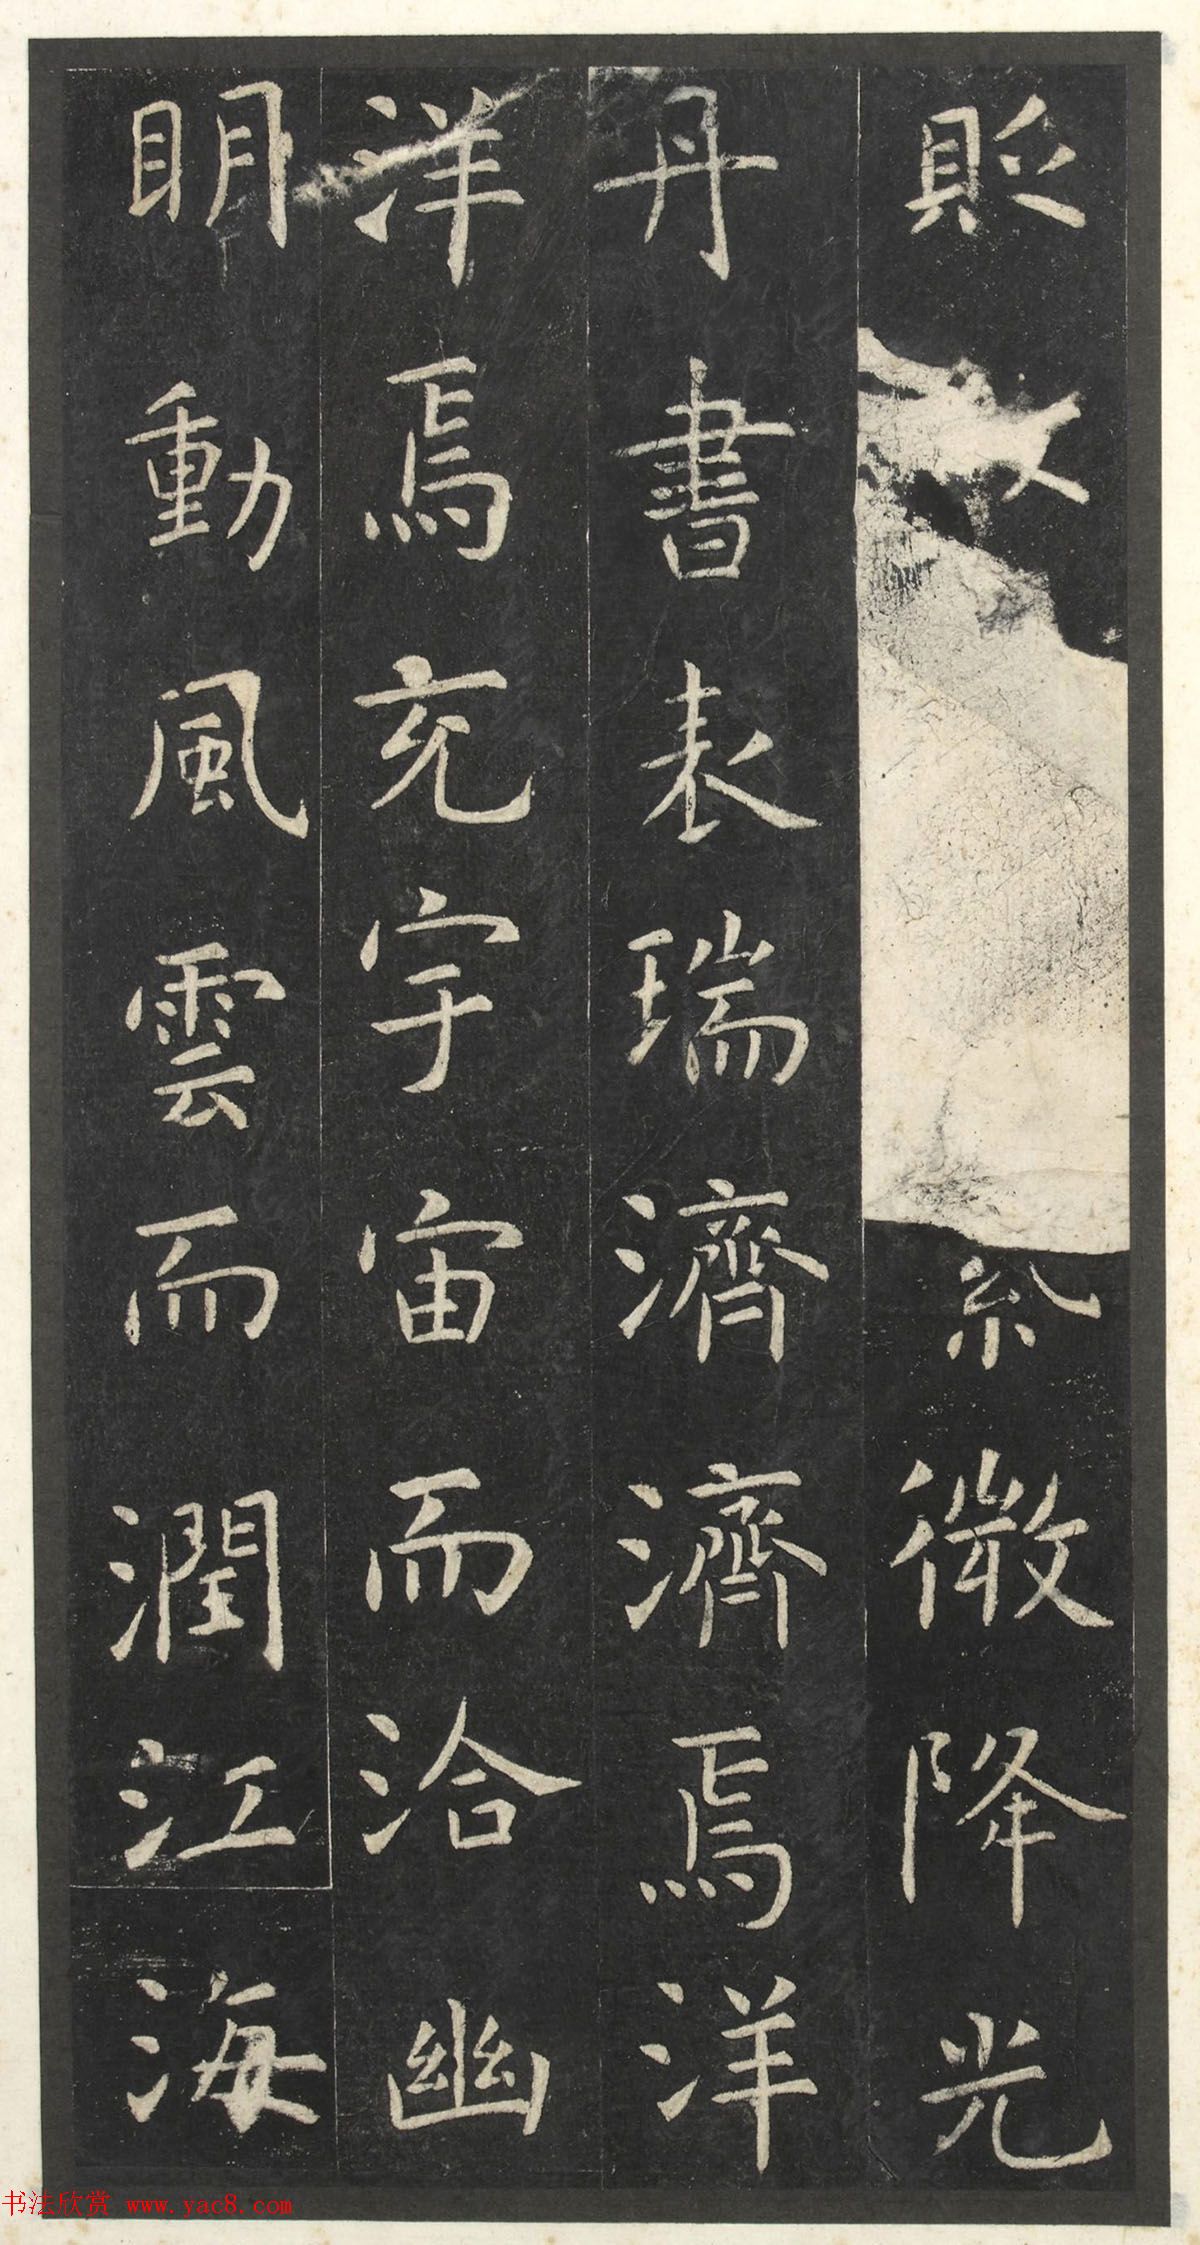 貶紫微降光
丹書表瑞濟濟焉洋
洋焉充宇宙而洽幽
明動風雲而潤江海
书法欣赏 www.yac8.com